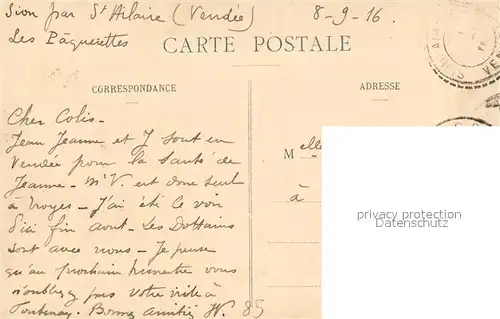 Sion par St Hilaire (Vendée) 8-9-16.
Les Pâquerettes
CARTE POSTALE
CORRESPONDANCE
ADRESSE
Cher Colis-
Jean Jeanne et J sont en
Vendée pour la santé de
Jeanne - Mr V. est donc seul
à Troyes - J'ai été le voir
d'ici fin aout - Les
sont avec nous - Je pense
qu'au prochain vous
n'oublierez pas votre visite à
Fontenay. Bonnes amitiés 85
Melle
à
privacy protection
Datenschutz